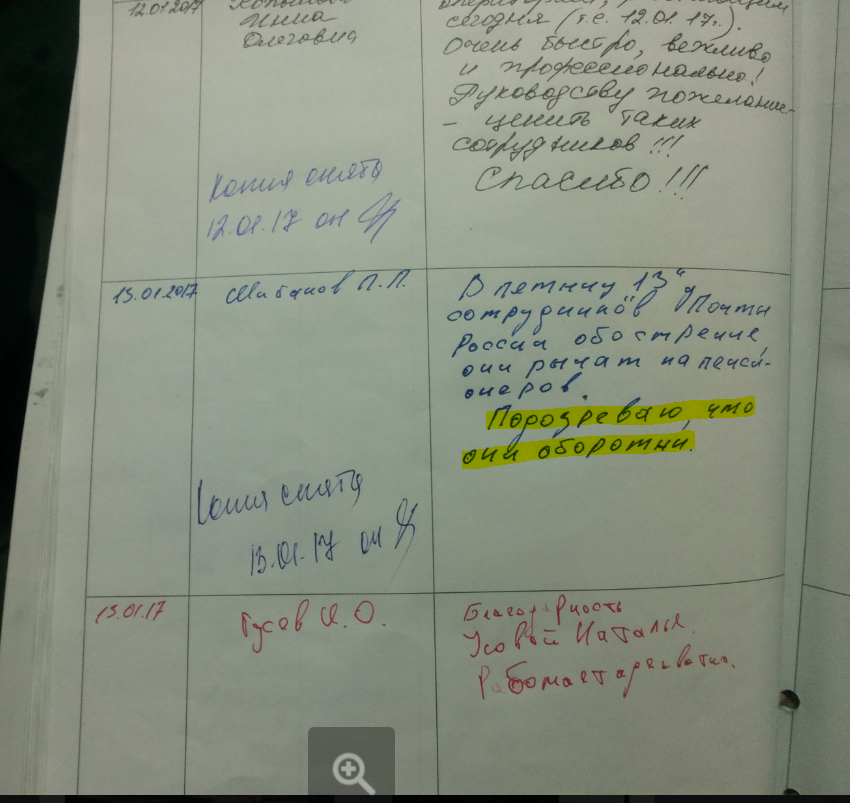 12.01.2017
Инна
Олеговна
сегодня (т.е. 12.01.17г.).
Очень быстро, вежливо
и профессионально!
Руководству пожелание-
- ценить таких
сотрудников!!!
Спасибо!!!
Копия снята
12.01.17 он
13.01.2017
П.П.
В пятницу 13"
сотрудников "Почты
России обострение,
они рычат на пенси-
онеров.
Подозреваю, что
они оборотни.
Копия снята
13.01.17 он
13.01.17
Гусев И.О.
Благодарность
Усовой Наталье.
Работает